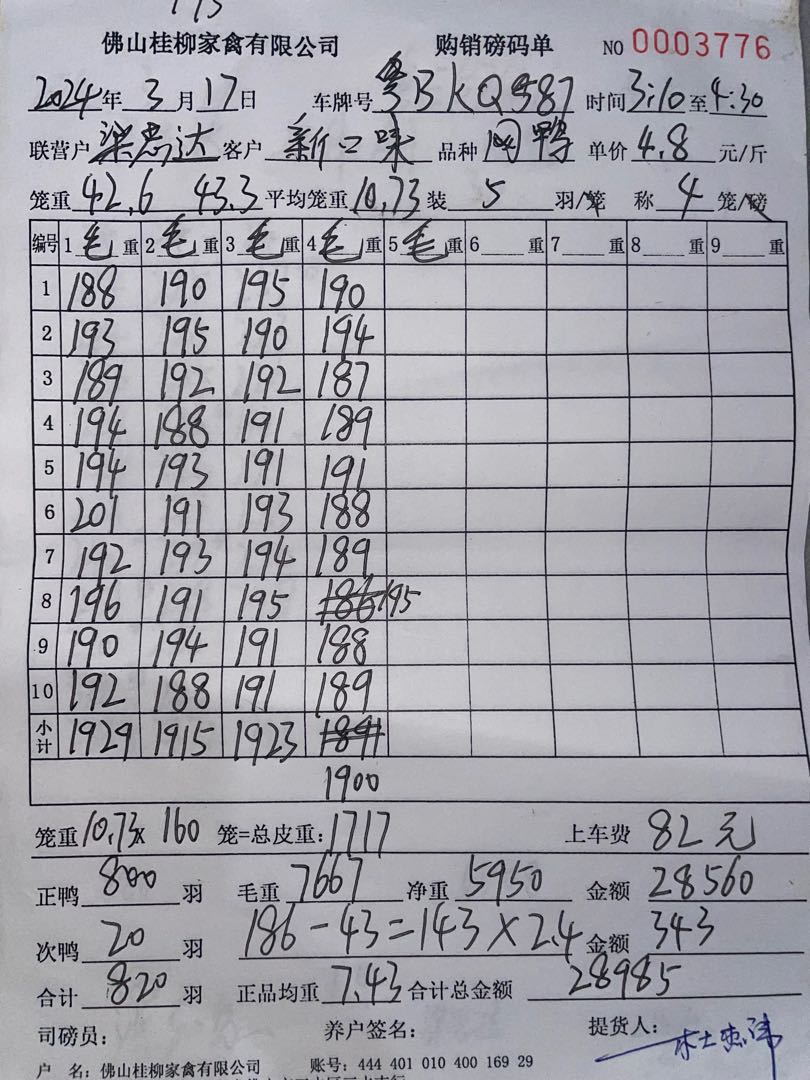 佛山桂柳家禽有限公司 购销磅码单 NO 0003776
2024年3月17日 车牌号 粤BKQ587 时间3:10至4:30
联营户 梁志达 客户 新口味 品种 阉鸭 单价4.8元/斤
笼重42.6 43.3 平均笼重10.73 装5羽/笼 称4笼/磅
编号 1毛重 2毛重 3毛重 4毛重 5毛重 6重 7重 8重 9重
1 188 190 195 190
2 193 195 190 194
3 189 192 192 187
4 194 188 191 189
5 194 193 191 191
6 201 191 193 188
7 192 193 194 189
8 196 191 195 186 195
9 190 194 191 188
10 192 188 191 189
小计 1929 1915 1923 1891
1900
笼重10.73x 160 笼=总皮重:1717 上车费 82元
正鸭800羽 毛重7667 净重5950 金额28560
次鸭20羽 186-43=143×2.4 金额343
合计820羽 正品均重7.43 合计总金额28985
司磅员: 养户签名: 提货人:
户 名:佛山桂柳家禽有限公司 账号:444 401 010 400 169 29